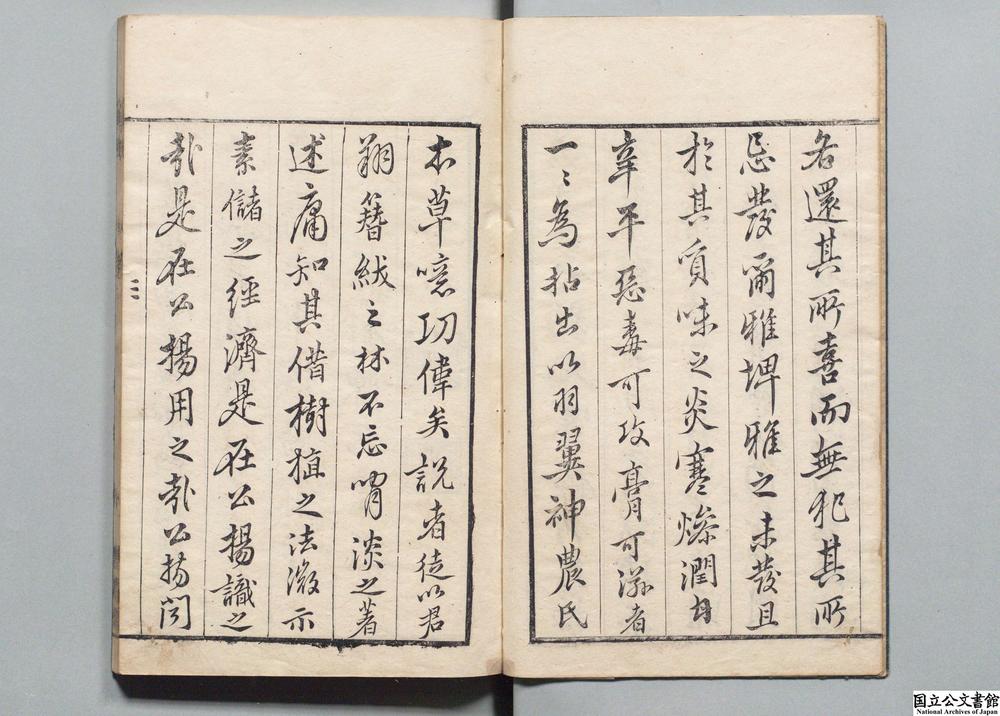 各還其所喜而無犯其所
忌發爾雅埤雅之未發且
於其質味之炎寒燥潤甘
辛平惡毒可攻膏可滋者
一〻為拈出以羽翼神農氏
本草噫功偉矣說者徒以君
翔簪紱之林不忘嘯淡之著
述庸知其借樹植之法微示
素儲之經濟是在公揚識之
哉是在公揚用之哉公揚閩
国立公文書館
National Archives of Japan